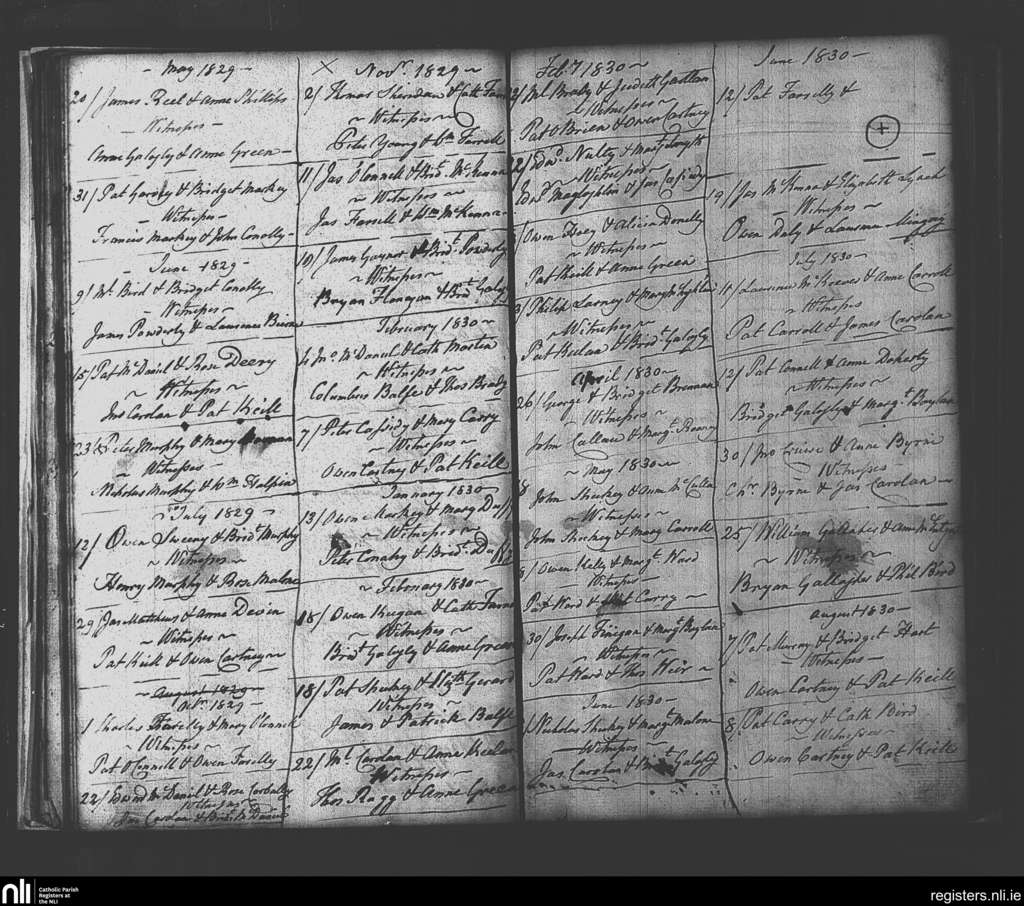 - May 1829 -
20/ James Reel & Anne Phillips
- Witnesses -
Anne Galegly & Anne Green -
31/ Pat Garvey & Bridget Mackey
- Witness -
Francis Mackey & John Connolly -
- June 1829 -
9/ Mt. Bird & Bridget Conolly
- Witnesses -
James Powderly & Lawrence Birne
15/ Pat McDaniel & Rose Deery
Witness ~
Jno Carolan & Pat Keill
23 & Peter Murphy & Mary
~ Witnesses -
Nicholas Murphy & Wm Halpin
July 1829 -
12/ Owen Sweeny & Bridt. Murphy
~ Witnesses ~
Henry Murphy & Rose Malone
29/ Jas Mathews & Anne Devin
~ Witnesses ~
Pat Keill & Owen Cartney ~
~ August 1829 ~
Octr. 1829 -
1 Charles Farrelly & Mary O'Connell
~ Witnesses ~
Pat O'Connell & Owen Farelly
22/ Edwd McDaniel & Rose Corbally
Witnesses ~
Jas Carolan & Bridt. McDaniel
X Novr. 1829 ~
2/ Thomas Sheridan & Cath
~ Witnesses ~
Peter Young & Cn Farrell
11/ Jas O'Connell & Bridt. McKenna
~ Witnesses ~
Jas Farrell & Wm McKenna -
10/ James Gaynor & Bridt. Powderly
~ Witnesses ~
Bryan Flanagan & Bridt Galegly
February 1830 ~
4 Jno. McDaniel & Cath Martin
~ Witnesses ~
Columbus Balfe & Thos Brady
7/ Peter Cassidy & Mary Carry
~ Witness ~
Owen Cartney & Pat Keill
January 1830 ~
13/ Owen Mackey & Marg Duffy
~ Witnesses ~
Peter Conahy & Bridt. Duffy
~ February 1830 ~
18/ Owen Keegan & Cath
~ Witnesses ~
Bridt Galegly & Anne Green
18/ Pat Sheekey & Elizth Gerard
Witness ~
James & Patrick Balfe
22/ Mt. Carolan & Anne Keelan
Witness ~
Thos Ragg & Anne Green
Feb 7 1830 ~
Mt Brady & Judeth
Witnesses ~
Pat O'Brien & Owen Cartney
22/ Edwd. Nulty & Marg
~ Witnesses ~
Edwd Magloghlin & Jas Cassidy
Owen & Alicia Donelly
~ Witness ~
Pat Keill & Anne Green
Philip Larney & Mary
~ Witnesses ~
Pat Keelan & Bridt. Galegly
April 1830 ~
26/ George & Bridget Brennan
~ Witnesses ~
John & Margt. Reaney
~ May 1830 ~
8 John Sheekey & Anne McCullen
~ Witness ~
John Sheekey & Mary Carroll
8/ Owen Kelly & Margt. Ward
Witness ~
Pat Ward & Carry ~
30/ Joseph Finegan & Margt Boylan
~ Witness ~
Pat Ward & Thos Weir ~
June 1830 ~
Nicholas Sheekey & Margt Malone
~ Witness ~
Jas Carolan & Bridt Galegly
June 1830 -
12/ Pat Farrelly &
+
19/ Jas McKenna & Elizabeth Lynch
Witness ~
Owen Daly & Lawrence
July 1830 -
11/ Lawrence McKeever & Anne Carroll
~ Witness
Pat Carroll & James Carolan
12/ Pat Connell & Anne Doherty
~ Witness ~
Bridget Galegly & Margt. Boylan
30/ Jno Cruise & Anne Byrne
Witness ~
Chr. Byrne & Jas Carolan ~
25/ William Gallagher & Anne
~ Witness ~
Bryan Gallagher & Phil Bird
August 1830 -
7/ Pat Murray & Bridget Hart
- Witness -
Owen Cartney & Pat Keill
8/ Pat Carry & Cath Bird
Witness ~
Owen Cartney & Pat Keill
nli
Catholic Parish
Registers at
the NLI
registers.nli.ie